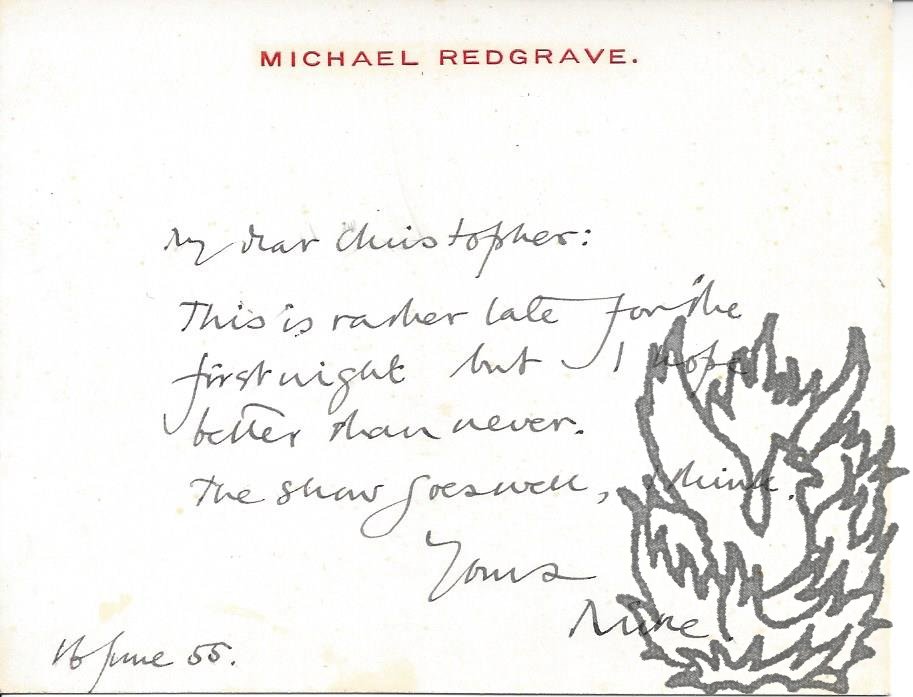 MICHAEL REDGRAVE.
My dear Christopher:
This is rather late for the
first night but I hope
better than never.
The show goes well, I think.
Yours
Mike.
16 June 55.